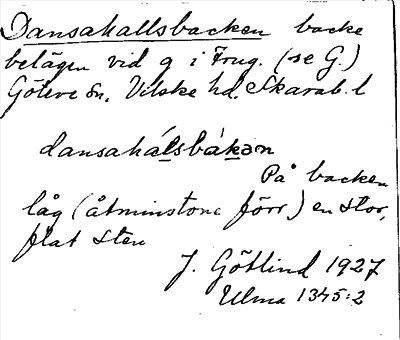 Dansahallsbacken backe
belägen vid g i Frug. (se G.)
Göteve Sn, Vilske hd. Skarab. l
dansahálsbákan
På backen
låg (åtminstone förr) en stor,
flat sten
J. Götlind 1927
Ulma 1345:2